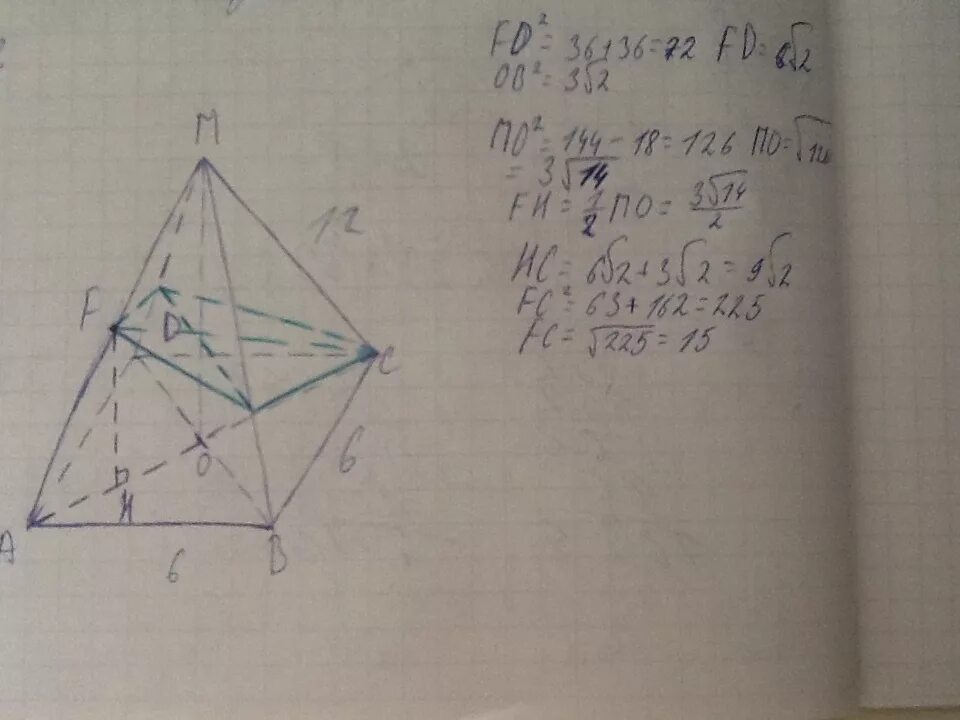 FD² = 36+36=72 FD=6√2
OB² = 3√2
MO² = 144 - 18 = 126 ПО=√126
= 3√14
FH = 1/2 ПО = 3√14/2
HC = 6√2+3√2 = 9√2
FC² = 63+162=225
FC = √225 = 15
M
12
F
D
C
O
6
H
A
B
6